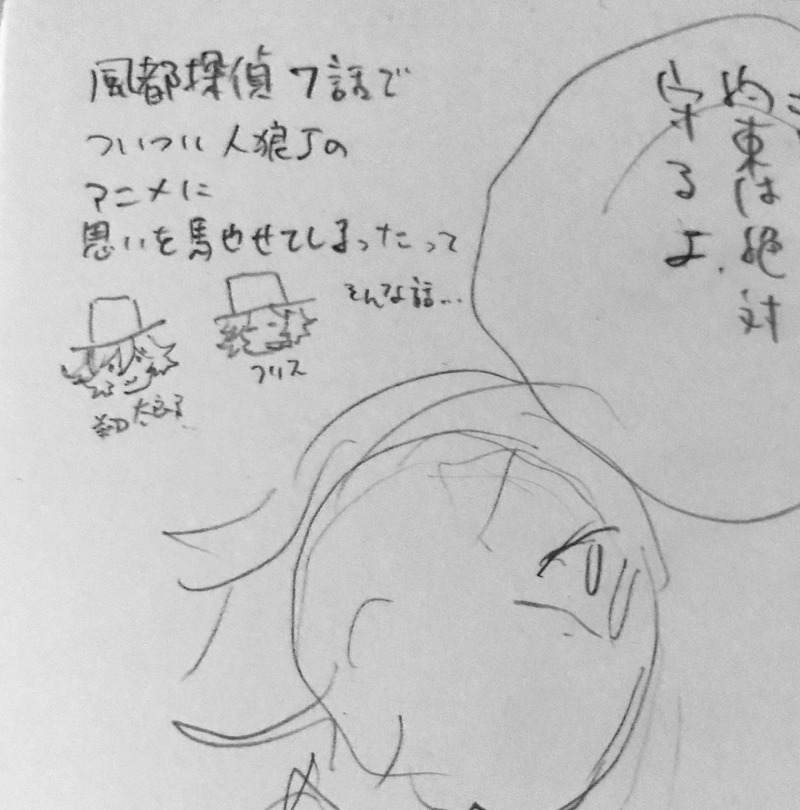 風都探偵7話で
ついつい人狼Jの
アニメに
思いを馳せてしまったって
そんな話…
フリス
翔太郎
約束は絶対
守るよ。